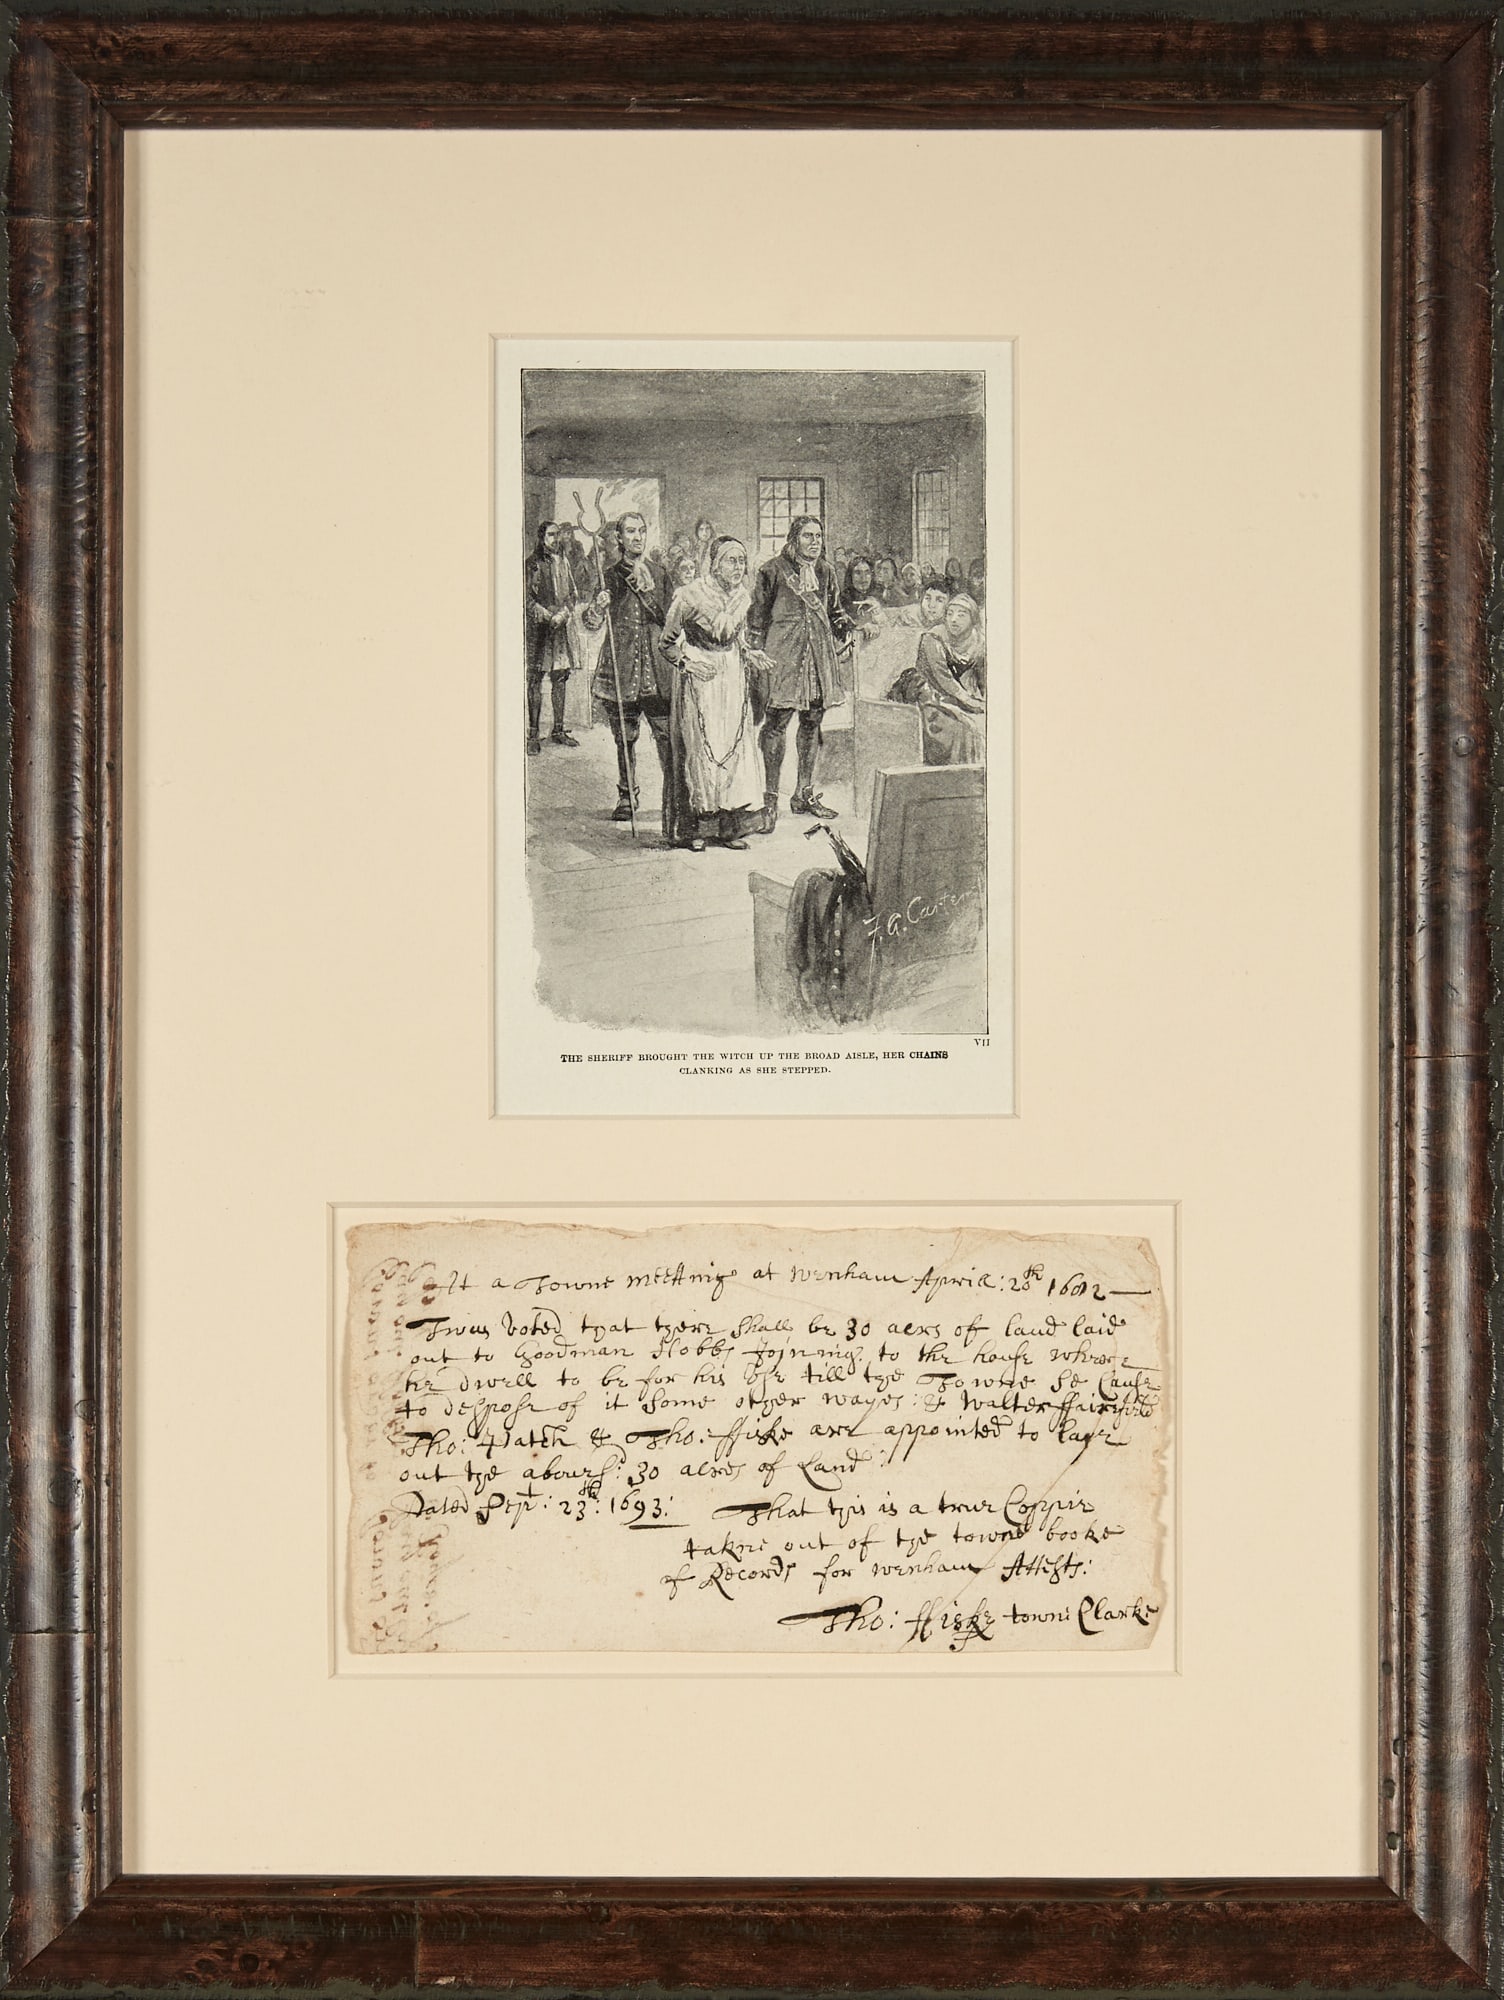 F. A. Carter
VII
THE SHERIFF BROUGHT THE WITCH UP THE BROAD AISLE, HER CHAINS
CLANKING AS SHE STEPPED.
At a Towne meetting at Wenham Aprill: 20th
Twas Voted that there shall be 30 acres of land laid
out to Goodman Hobbs Joining to the house where
he dwell to be for his use till the Towne se Cause
to despose of it some other wayes: & Walter ffairefield
Tho: Patch & Tho: ffiske are appointed to laye
out the abouesd: 30 acres of Land:
Dated Sept: 23th: 1693: That this is a true Coppie
taken out of the towne booke
of Records for Wenham Attests:
Tho: ffiske towne Clarke